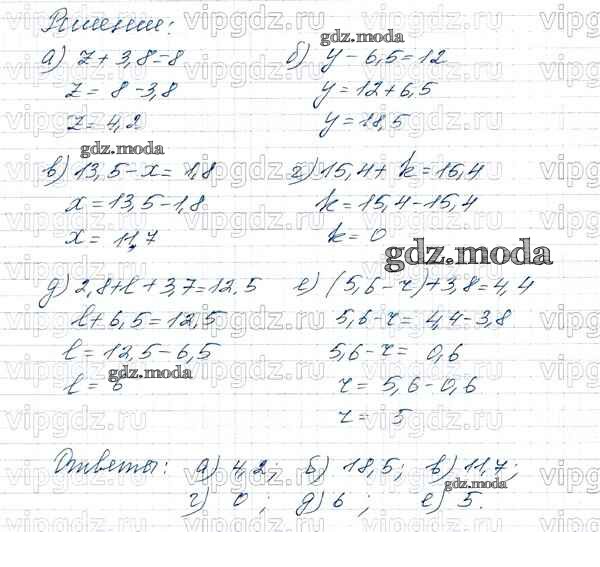 Решение:
а) z + 3,8 = 8
z = 8 - 3,8
z = 4,2
б) y - 6,5 = 12
y = 12 + 6,5
y = 18,5
в) 13,5 - x = 1,8
x = 13,5 - 1,8
x = 11,7
г) 15,4 + k = 15,4
k = 15,4 - 15,4
k = 0
д) 2,8 + l + 3,7 = 12,5
l + 6,5 = 12,5
l = 12,5 - 6,5
l = 6
е) (5,6 - r) + 3,8 = 4,4
5,6 - r = 4,4 - 3,8
5,6 - r = 0,6
r = 5,6 - 0,6
r = 5
Ответы: а) 4,2; б) 18,5; в) 11,7;
г) 0; д) 6; е) 5.
gdz.moda
gdz.moda
gdz.moda
gdz.moda
gdz.moda
vipgdz.ru